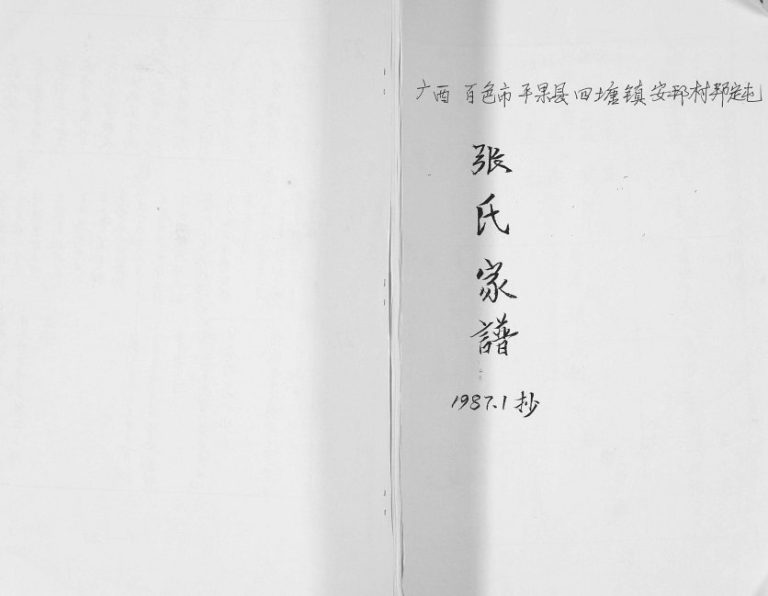 广西 百色市平果县四塘镇安邦村邦定屯
张氏家譜
1987.1抄